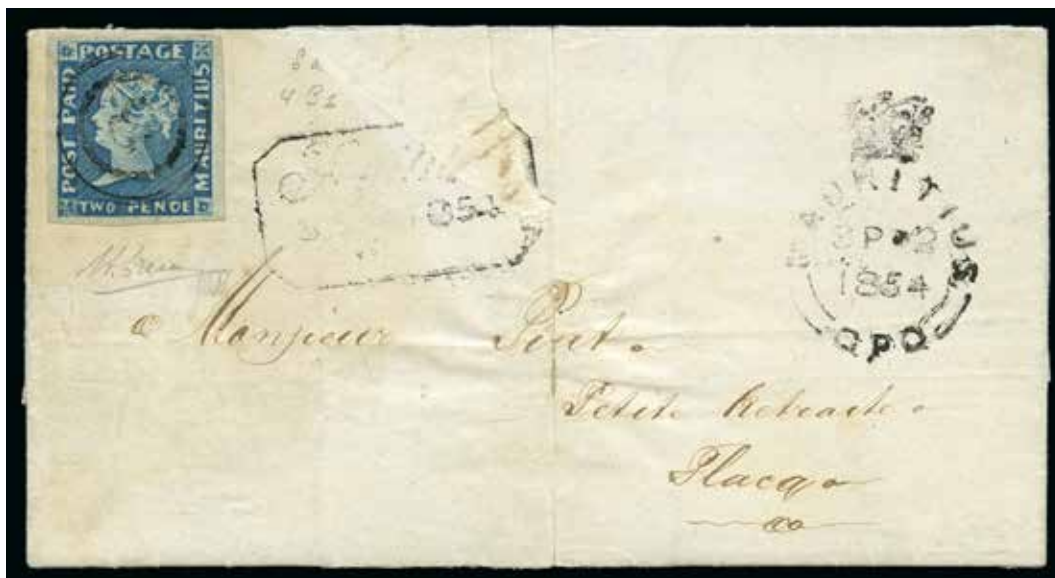 POSTAGE
POST PAID
MAURITIUS
TWO PENCE
1854
MAURITIUS
SP 2
1854
GPO
a Monsieur Piat
Petite Retraite
Flacq